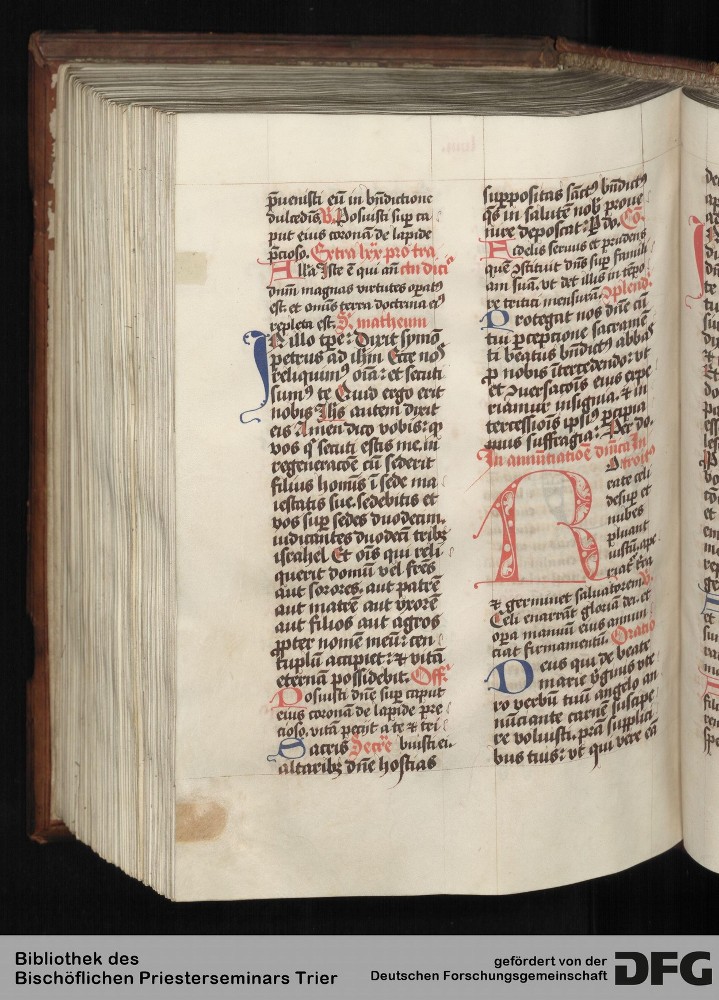 p̄uenisti eū in bn̄dictione
dulcedīs. R̃. Posuisti sup̲ ca
put eius coronā de lapide
p̄cioso. Extra lxx. pro tra
Alla Iste ē qui an̄ ctu dici
deum magnas virtutes op̲atꝰ
est. et omīs terra doctrina eiꝰ
repleta est. S. matheum
IN illo tp̄e: Dixit symō
petrus ad ihm̄ Ecce nos
reliquimꝰ oīa: et secuti
sumꝰ te Quid ergo erit
nobis Ihs autem dixit
eis Amen dico vobis: qp̲
vos qͥ secuti estis me. in
regeneracōe cū sederit
filius homīs ī sede ma
iestatis sue. sedebitis et
vos sup̲ sedes duodecim.
iudicantes duodecī tribꝫ
israhel Et oīs qui reli
querit domū vel fr̄es
aut sorores. aut patrē
aut matrē aut vxorē
aut filios aut agros
p̲pter nomē meū: cen
tuplū accipiet: ⁊ vitā
eternā possidebit. Offr̄
Posuisti dn̄e sup̲ caput
eius coronā de lapide pre
cioso. vitā pecijt a te ⁊ tri
Sacris Secrē buisti ei.
altaribꝫ dn̄e hostias
suppositas sāctꝰ bn̄dictꝰ
qs̄ in salutē nob̄ proue
nire deposcat: P̲ do. Cō.
Fidelis seruus et prudens
quē ꝯstituit dn̄s sup̲ famili
am suā. vt det illis in tēpo
re tritici mensurā. Cplend̄
Protegat nos dn̄e cū
tui p̲ceptione sacramē
ti beatus bn̄dictꝰ abbas
p̲ nobis ītercedendo: vt
et ꝯuersacōis eius expe
riamur insignia. ⁊ in
tercessiōis ipsiꝰ p̲cipia
mus suffragia: Per do.
In annūtiatiōe dn̄ica In
troitꝰ
Rorate celi
desup̲ et
nubes
pluant
iustū. ape
riat̄ t̄ra
⁊ germinet saluatorem
Celi enarrāt gloriā dei. et
op̲a manuū eius annun
ciat firmamentū. Oratio
Deus qui de beate
marie v̄ginis vte
ro verbū tuū angelo an
nūciante carnē suscipe
re voluisti. p̄ta supplici
bus tuis: vt qui vere eā
Bibliothek des
Bischöflichen Priesterseminars Trier
gefördert von der
Deutschen Forschungsgemeinschaft
DFG